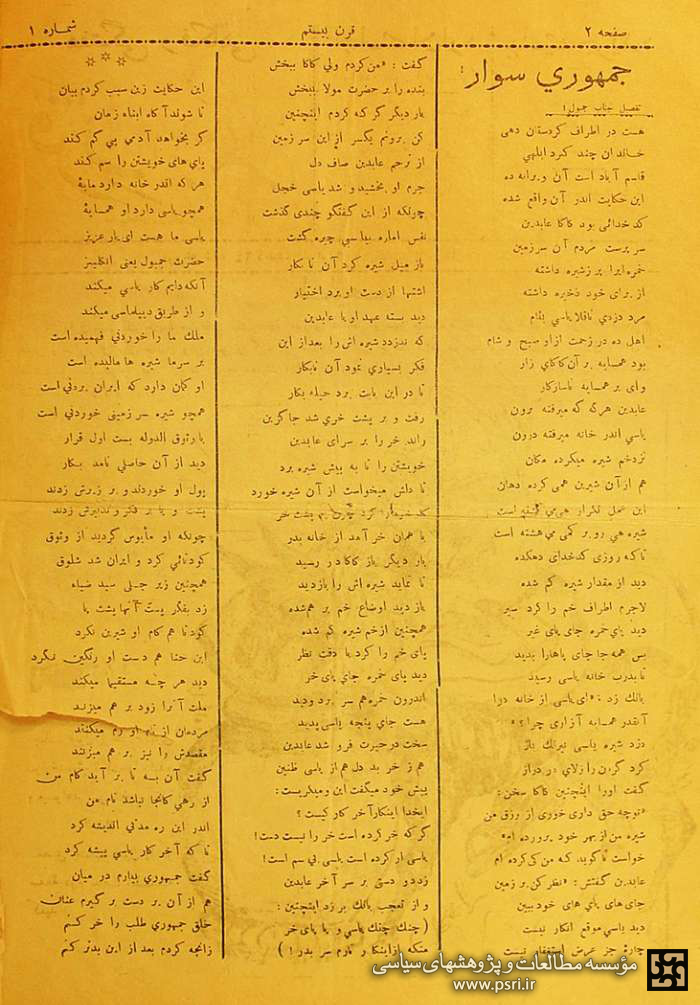 صفحه ۲
قرن بیستم
شماره ۱
جمهوري سوار :
تفصیل جناب جمبول !
هست در اطراف کردستان دهی
خاندان چند کرد ابلهی
قاسم آباد است آن ویرانه ده
این حکایت اندر آن واقع شده
کدخدائی بود کاکا عابدین
سرپرست مردم آن سرزمین
خمره‌ایرا پر زشیره داشته
از برای خود ذخیره داشته
مرد دزدی ناقلا یاسی بنام
اهل ده در زحمت ازاو صبح و شام
بود همسایه بر آن کاکای زار
وای بر همسایه ناسازکار
عابدین هرکه که میرفته برون
یاسی اندر خانه میرفته درون
نزدخم شیره میکرده مکان
هم از آن شیرین همی کرده دهان
این عمل تکرار هی می گشته است
شیره هی رو بر کمی می هشته است
تاکه روزی کدخدای دهکده
دید از مقدار شیره کم شده
لاجرم اطراف خم را کرد سیر
دید پای خمره جای پای غیر
پس همه جا جای پاهارا بدید
تا بدرب خانه یاسی رسید
بانک زد : «ای یاسی از خانه درا
آنقدر همسایه آزاری چرا ؟ »
دزد شیره یاسی نیرنک باز
کرد گردن را زلای در دراز
گفت اورا اینچنین کاکا سخن :
«توچه حق داری خوری از رزق من
شیره من از بهر خود پرورده ام»
خواست تا گوید که من کی کرده ام
عابدین گفتش : «نظر کن بر زمین
جای های پای های خود ببین
دید یاسی موقع انکار نیست
چارۀ جز عرض استغفار نیست
گفت : «من کردم ولی کاکا ببخش
بنده را بر حضرت مولا ببخش
بار دیگر گر که کردم اینچنین
کن برونم یکسر از این سر زمین
از ترحم عابدین صاف دل
جرم او بخشید و شد یاسی خجل
چونکه از این گفتگو چندی گذشت
نفس اماره بیاسی چیره گشت
باز میل شیره کرد آن نا بکار
اشتها از دست او برد اختیار
دید بسته عهد او با عابدین
که ندزدد شیره اش را بعد از این
فکر بسیاری نمود آن نابکار
تا در این بابت برد حیله بکار
رفت و بر پشت خری شد جاگزین
راند خر را بر سرای عابدین
خویشتن را تا به پیش شیره برد
تا دلش میخواست از آن شیره خورد
با همان خر آمد از خانه بدر
بار دیگر باز کاکا در رسید
تا نماید شیره اش را بازدید
باز دید اوضاع خم بر هم شده
همچنین ازخم شیره کم شده
پای خم را کرد با دقت نظر
دید پای خمره جای پای خر
اندرون خمره هم سر برد و دید
هست جای پنجه یاسی پدید
سخت در حیرت فرو شد عابدین
هم ز خر بد دل هم از یاسی ظنین
پیش خود میگفت این و میگریست :
ایخدا اینکار آخر کار کیست ؟
گر که خر کرده است خر را نیست دست !
یاسی ار کرده است یاسی بی سم است !
زد دو دستی بر سر آخر عابدین
و از تعجب بانک بر زد اینچنین :
( چنک چنک یاسی و پا پای خر
منکه از اینکار نارم سر بدر ! )
این حکایت زین سبب کردم بیان
تا شوند آگاه ابناء زمان
گر بخواهد آدمی پی گم کند
پای های خویشتن را سم کند
هر که اندر خانه دارد مایۀ
همچو یاسی دارد او همسایۀ
یاسی ما هست ای یار عزیز
حضرت جمبول یعنی انکلیز
آنکه دایم کار یاسی میکند
و از طریق دیپلماسی میکند
ملک ما را خوردنی فهمیده است
بر سرما شیره ها مالیده است
او کمان دارد که ایران بردنی است
همچو شیره سر زمینی خوردنی است
با وثوق الدوله بست اول قرار
دید از آن حاصلی نامد بکار
پول او خوردند و بر زیرش زدند
پشت و پا بر فکر و تدبیرش زدند
چونکه او مأیوس گردید از وثوق
کودتائی کرد و ایران شد شلوق
همچنین زیر جلی سید ضیاء
زد بفکر پست آنها پشت پا
کودتا هم کام او شیرین نکرد
این حنا هم دست او رنگین نکرد
دید هر چه مستقیما میکند
ملت آنرا زود بر هم میزند
مردمان از نام او رم میکنند
مقصدش را نیز بر هم میزنند
گفت آن به تا بر آید کام من
از رهی کانجا نباشد نام من
اندر این ره مدتی اندیشه کرد
تا که آخر کار یاسی پیشه کرد
گفت جمهوری بیارم در میان
هم از آن بر دست بر گیرم عنان
خلق جمهوری طلب را خر کنم
زانچه کردم بعد از این بدتر کنم
مؤسسه مطالعات و پژوهشهای سیاسی
www.psri.ir